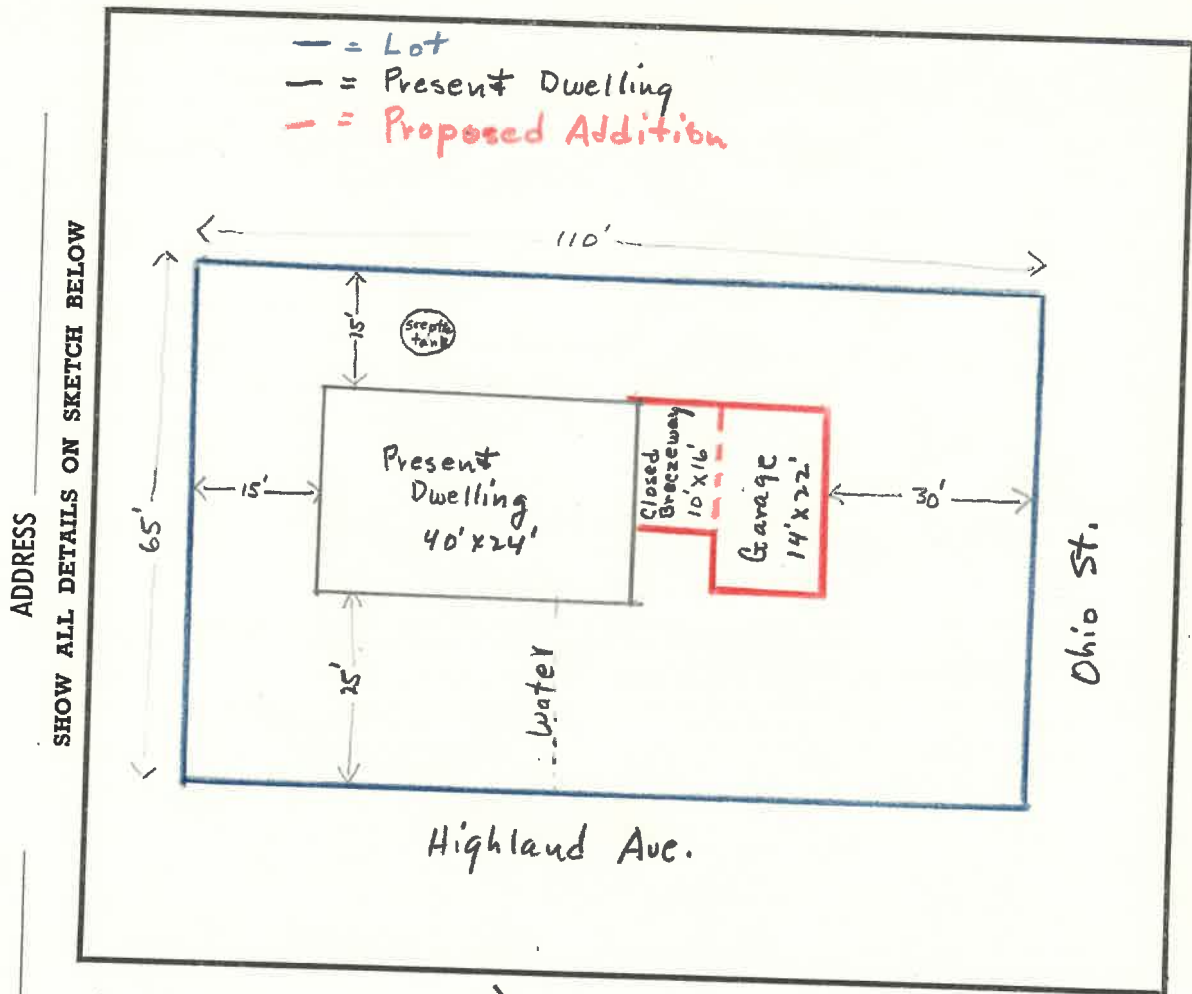 — = Lot
— = Present Dwelling
— = Proposed Addition
ADDRESS
SHOW ALL DETAILS ON SKETCH BELOW
110'
65'
15'
sceptic
tank
15'
Present
Dwelling
40'x24'
Closed
Breezeway
10'x16'
Garage
14'x22'
30'
25'
Water
Ohio St.
Highland Ave.